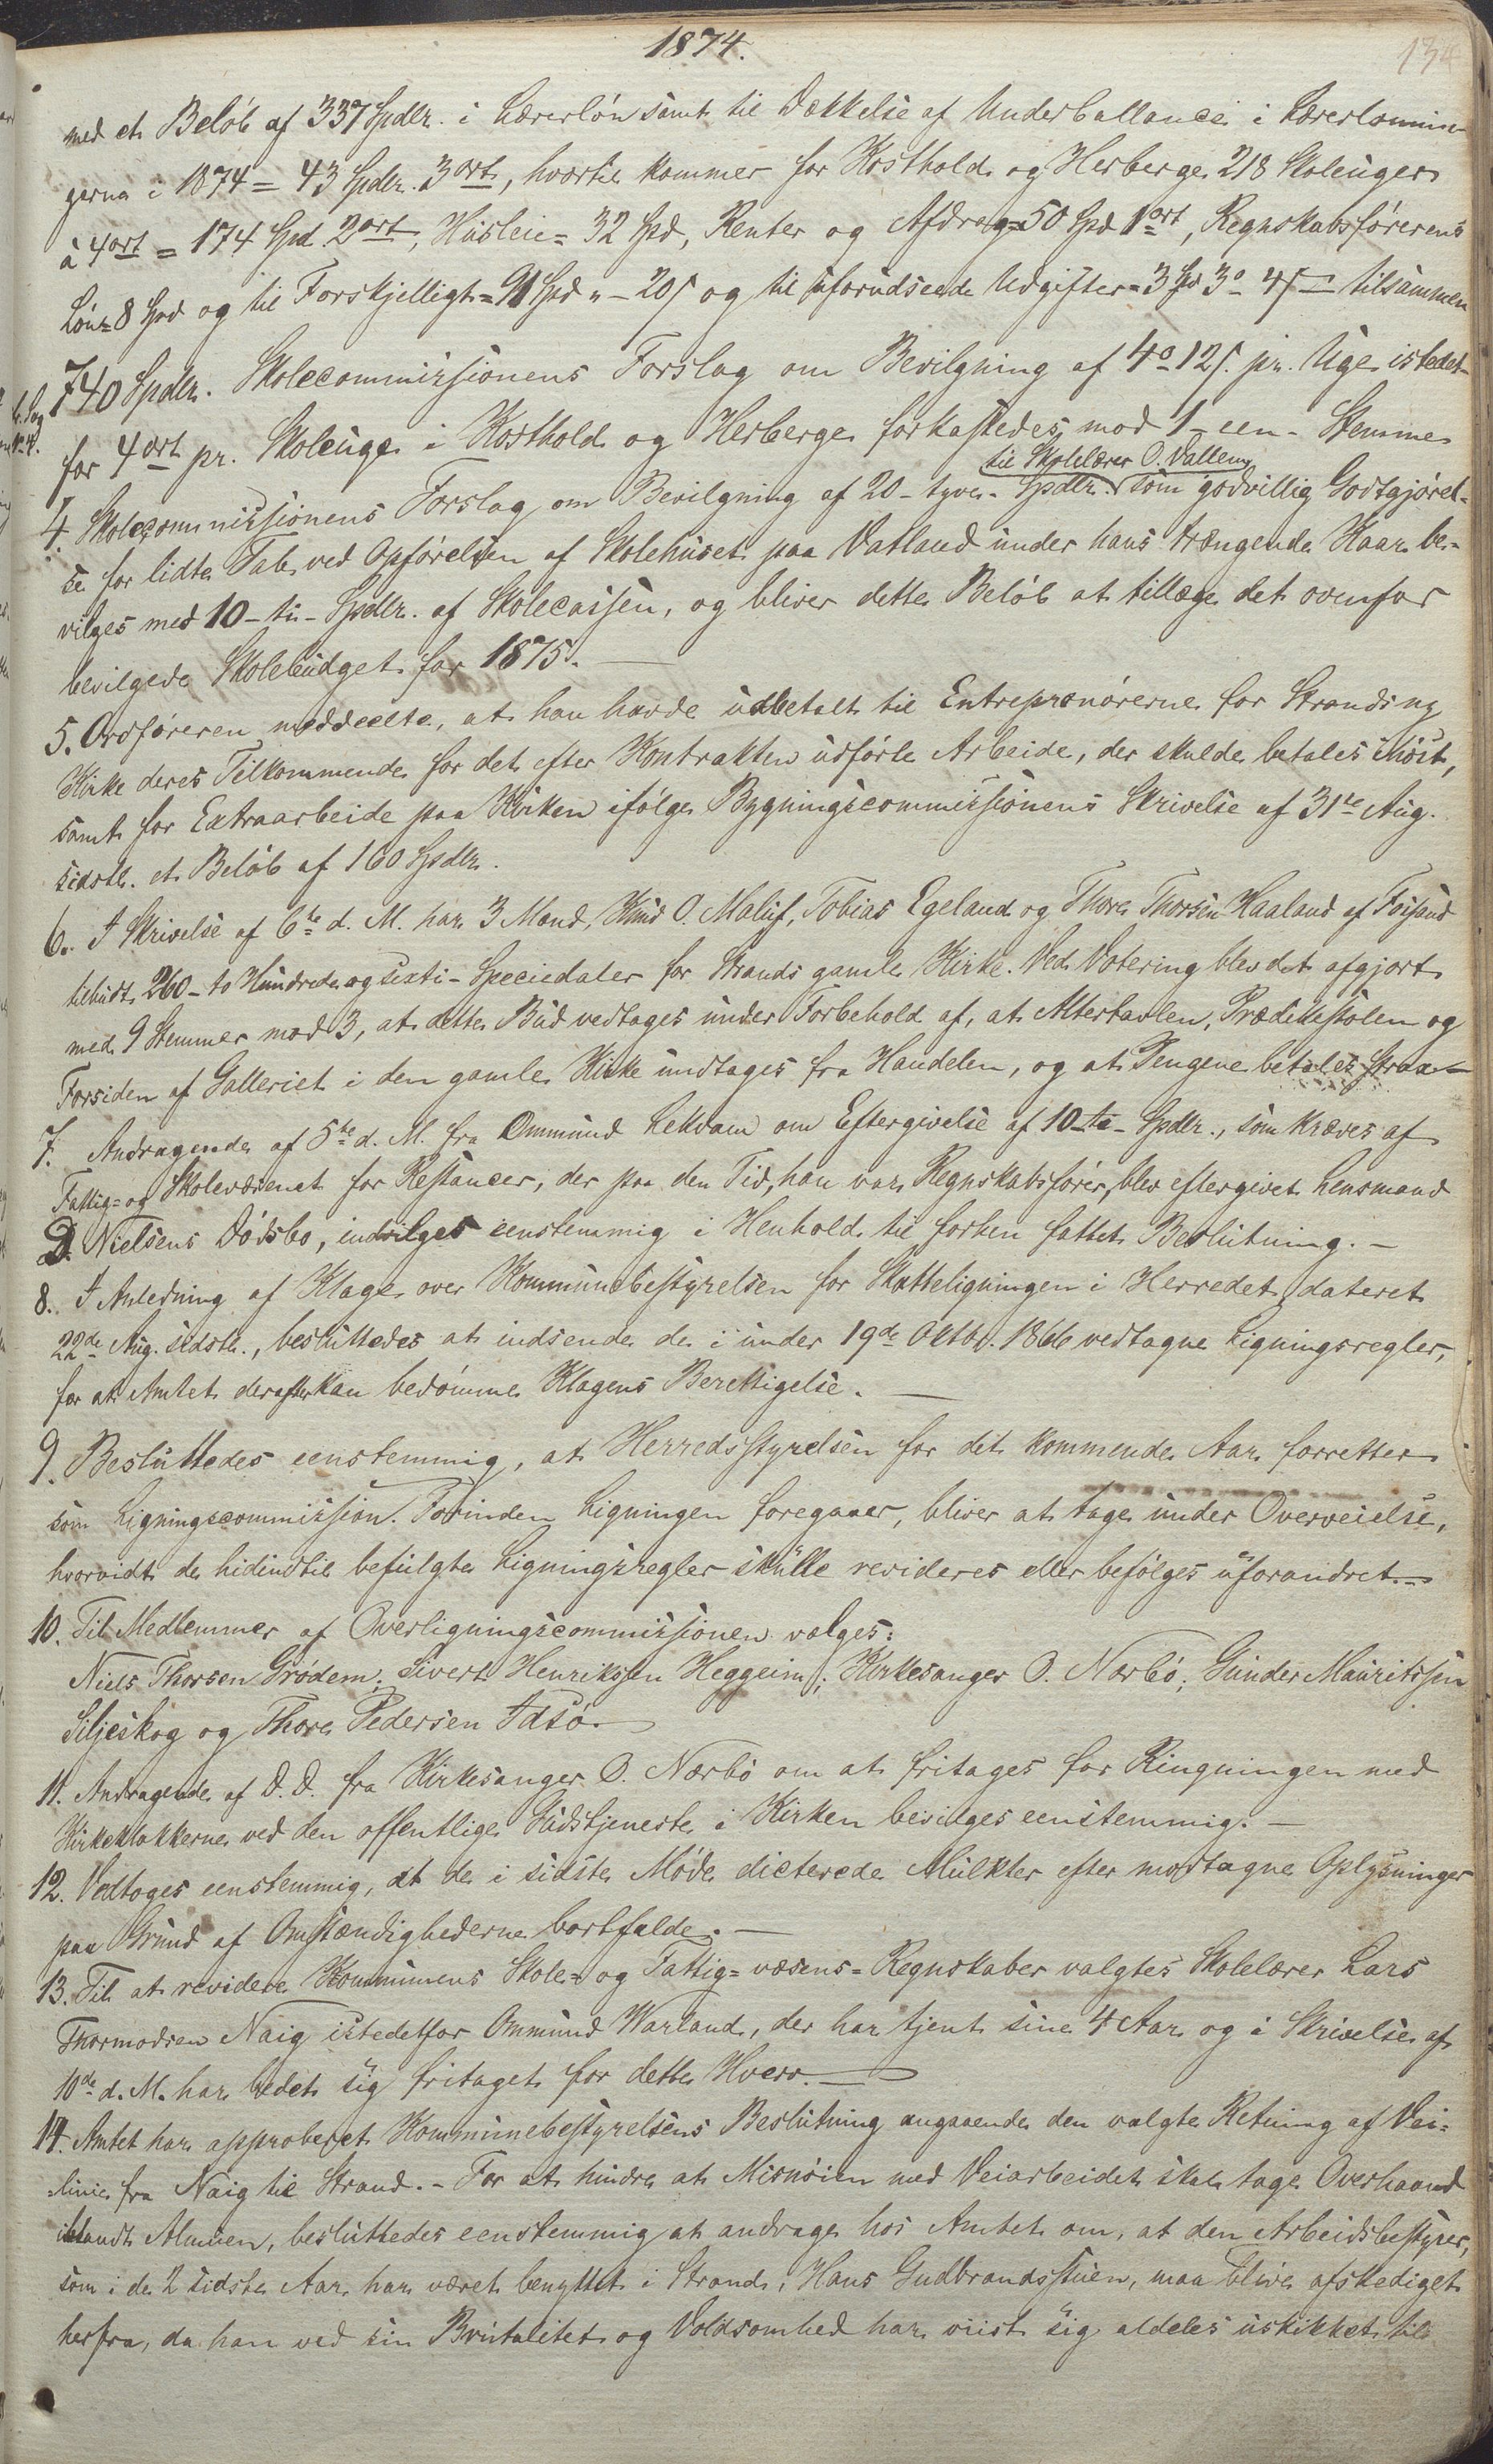 1874.
134
med et Beløb af 337 Spdlr. i Lærerløn samt til Dækkelse af Underballance i Lærerlønnin-
gerne i 1874 = 43 Spdlr. 3 ort, hvortil kommer for Kosthold og Herberge 218 Skoleuger
à 4 ort = 174 Spd 2 ort, Husleie = 32 Spd, Renter og Afdrag = 50 Spd 1 ort, Regnskabsførerens
Løn = 8 Spd og til Forskjelligt = 91 Spd " - 20 s og til uforudseede Udgifter = 3 Spd 3 o - 4 s — tilsammen
740 Spdlr. Skolecommissionens Forslag om Bevilgning af 4 o 12 s. pr. Uge istedet-
for 4 ort pr. Skoleuge i Kosthold og Herberge forkastedes mod 1 - een - Stemme
til Skolelærer O. Vatland
4. Skolecommissionens Forslag om Bevilgning af 20 - tyve - Spdlr. som godvillig Godtgjørel-
se for lidte Tab ved Opførelsen af Skolehuset paa Vatland under hans trængende Kaar be-
vilges med 10 - ti - Spdlr. af Skolecassen, og bliver dette Beløb at tillægge det ovenfor
bevilgede Skolebudget for 1875. —
5. Ordføreren meddeelte, at han havde udbetalt til Entreprenørerne for Strands ny
Kirke deres Tilkommende for det efter Kontrakten udførte Arbeide, der skulde betales i Høst,
samt for Extraarbeide paa Kirken ifølge Bygningscommissionens Skrivelse af 31te Aug.
sidstl. et Beløb af 160 Spdlr.
6. I Skrivelse af 6te d. M. har 3 Mænd, Knud O. Maluf, Tobias Egeland og Thore Thorsen Haaland af Fossand
tilbudt 260 - to Hundrede og sexti - Speciedaler for Strands gamle Kirke. Ved Votering blev det afgjort
med 9 Stemmer mod 3, at dette Bud vedtages under Forbehold af, at Altertavlen, Prædikestolen og
Forsiden af Galleriet i den gamle Kirke undtages fra Handelen, og at Pengene betales strax —
7. Andragende af 5te d. M. fra Ommund Lekvam om Eftergivelse af 10 - ti - Spdlr., som kræves af
Fattig- og Skolevæsenet for Restancer, der paa den Tid, han var Regnskabsfører, blev eftergivet Lensmand
D. Nielsens Dødsbo, indvilges eenstemmig i Henhold til forhen fattet Beslutning. —
8. I Anledning af Klage over Kommunebestyrelsen for Skatteligningen i Herredet, dateret
22de Aug. sidstl., besluttedes at indsende de i under 19de Oktbr. 1866 vedtagne Ligningsregler,
for at Amtet derefter kan bedømme Klagens Berettigelse. —
9. Besluttedes eenstemmig, at Herredsstyrelsen for det kommende Aar forretter
som Ligningscommission. Forinden Ligningen foregaaer, bliver at tage under Overveielse,
hvorvidt de hidindtil befulgte Ligningsregler skulle revideres eller befølges uforandret. —
10. Til Medlemmer af Overligningscommissionen valges:
Niels Thorsen Grødem; Sivert Henrikssen Heggeim; Kirkesanger O. Nærbø; Gunder Mauritssen
Siljeskog og Thore Pedersen Idsø. —
11. Andragende af D. D. fra Kirkesanger O. Nærbø om at fritages for Ringningen med
Kirkeklokkerne ved den offentlige Gudstjeneste i Kirken bevilges eenstemmig. —
12. Vedtoges eenstemmig, at de i sidste Møde dicterede Mulkter efter modtagne Oplysninger
paa Grund af Omstændighederne bortfalde. —
13. Til at revidere Kommunens Skole- og Fattig-væsens-Regnskaber valgtes Skolelærer Lars
Thormodsen Naig istedetfor Ommund Warland, der har tjent sine 4 Aar og i Skrivelse af
10de d. M. har bedet sig fritaget for dette Hverv. —
14. Amtet har approberet Kommunebestyrelsens Beslutning angaaende den valgte Retning af Vei-
linie fra Naig til Strand. - For at hindre at Misnøien med Veiarbeidet skal tage Overhaand
iblandt Almuen, besluttedes eenstemmig at andrage hos Amtet om, at den Arbeidsbestyrer,
som i de 2 sidste Aar har været benyttet i Strand, Hans Gudbrandsstuen, maa blive afskediget
herfra, da han ved sin Brutalitet og Voldsomhed har viist sig aldeles uskikket til